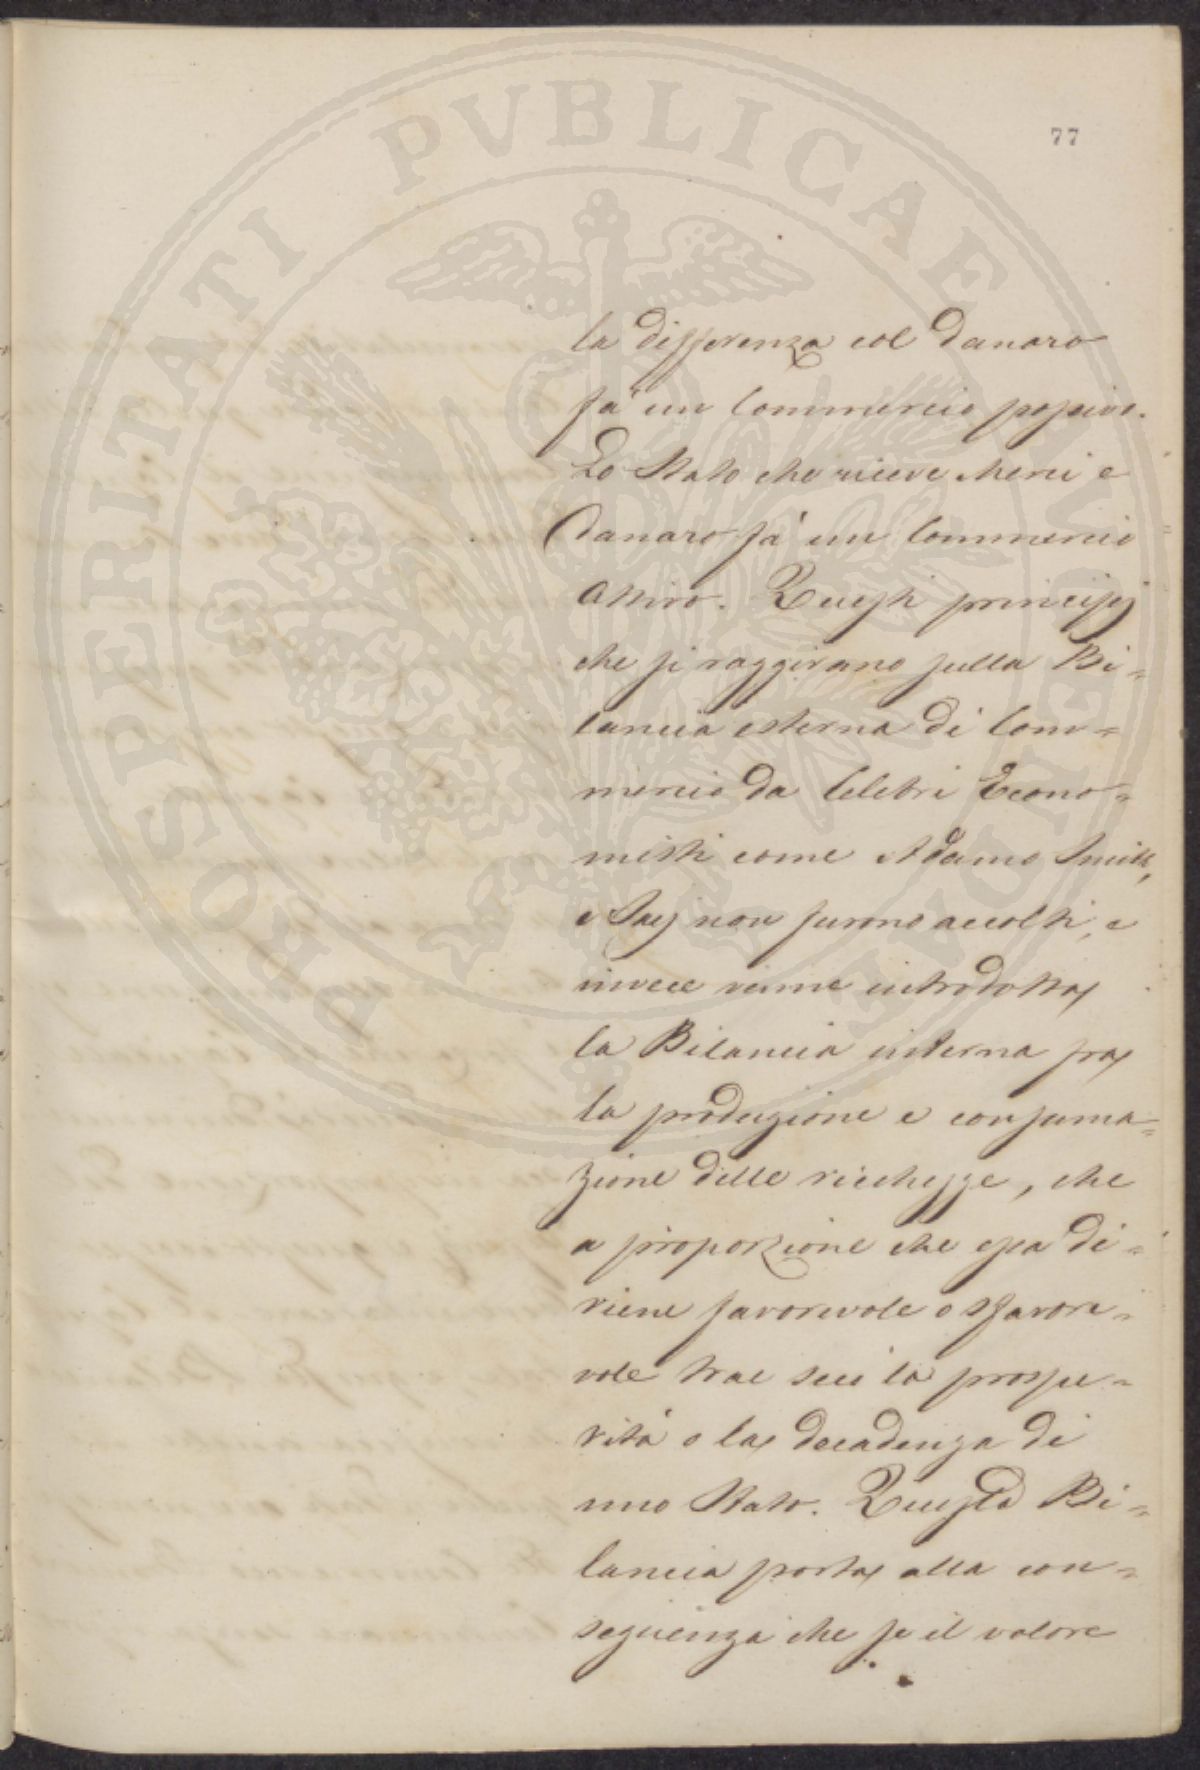 PROSPERITATI PVBLICAE PROVIDENDAE
77
la differenza col danaro
fà un Commercio passivo.
Lo Stato che riceve Merci e
danaro fà un Commercio
Attivo. Questi principj
che si raggirano sulla Bi=
lancia esterna di Com=
mercio da Celebri Econo=
misti come Adamo Smith,
e Say non furono accolti, e
invece venne introdotta
la Bilancia interna fra
la produzione e consuma=
zione delle ricchezze, che
a proporzione che essa di=
viene favorevole o sfavore=
vole trae seco la prospe=
rità o la decadenza di
uno Stato. Questa Bi=
lancia porta alla con=
seguenza che se il valore